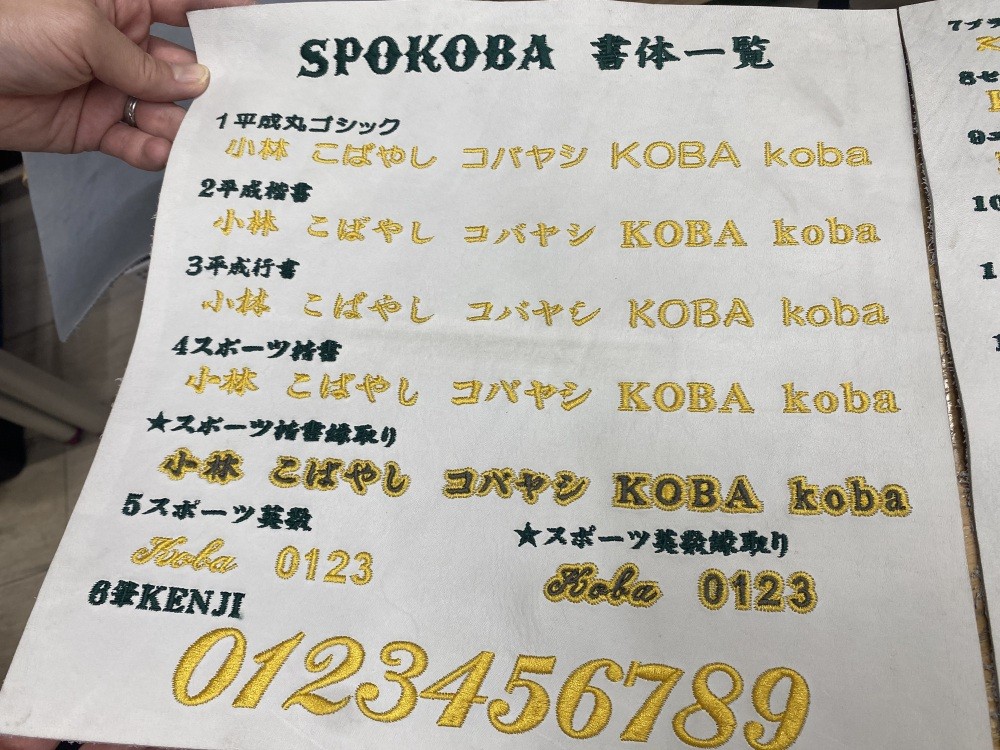 SPOKOBA 書体一覧
1平成丸ゴシック
小林 こばやし コバヤシ KOBA koba
2平成楷書
小林 こばやし コバヤシ KOBA koba
3平成行書
小林 こばやし コバヤシ KOBA koba
4スポーツ楷書
小林 こばやし コバヤシ KOBA koba
★スポーツ楷書縁取り
小林 こばやし コバヤシ KOBA koba
5スポーツ英数
Koba 0123
★スポーツ英数縁取り
Koba 0123
6筆KENJI
0123456789
7プラ
8セ
9
10
1
1